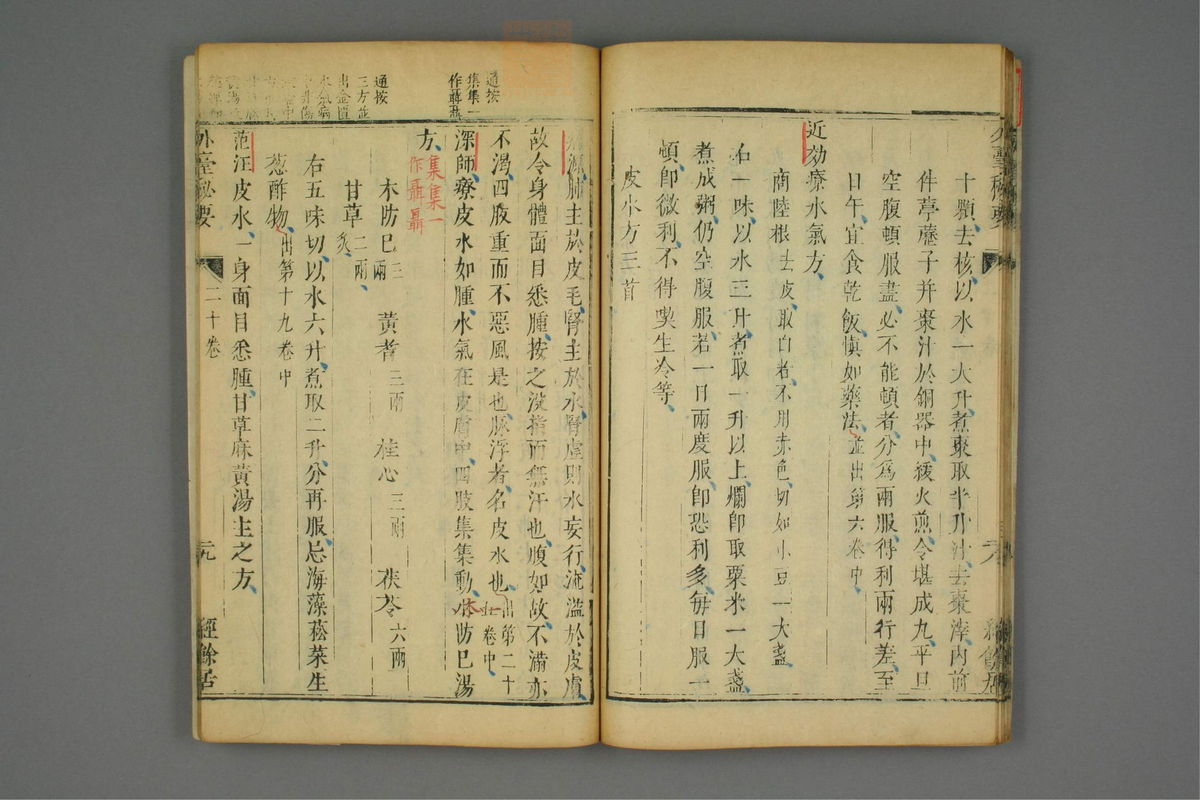 十顆去核以水一大升煮棗取半升汁去棗滓內前
件葶藶子并棗汁於銅器中緩火煎令堪成丸平旦
空腹頓服盡必不能頓者分爲兩服得利兩行差至
日午宜食乾飯愼如藥法並出第六卷中
近効療水氣方
商陸根去皮取白者不用赤色切如小豆一大盞
右一味以水三升煮取一升以上爛卽取粟米一大盞
煮成粥仍空腹服若一日兩度服卽恐利多每日服一
頓卽微利不得喫生冷等
皮水方三首
病源肺主於皮毛腎主於水腎虛則水妄行流溢於皮膚
故令身體面目悉腫按之沒指而無汗也腹如故不滿亦
不渴四肢重而不惡風是也脈浮者名皮水也出第二十一卷中
通按
集集一
作聶聶
深師療皮水如腫水氣在皮膚中四肢集集動木防已湯
方
集集一
作聶聶
木防已三兩 黃耆三兩 桂心三兩 茯苓六兩
通按
三方並
出金匱
水氣病
甘草二兩炙
右五味切以水六升煮取二升分再服忌海藻菘菜生
葱酢物出第十九卷中
范汪皮水一身面目悉腫甘草麻黃湯主之方
外臺秘要 二十卷 元 經餘居